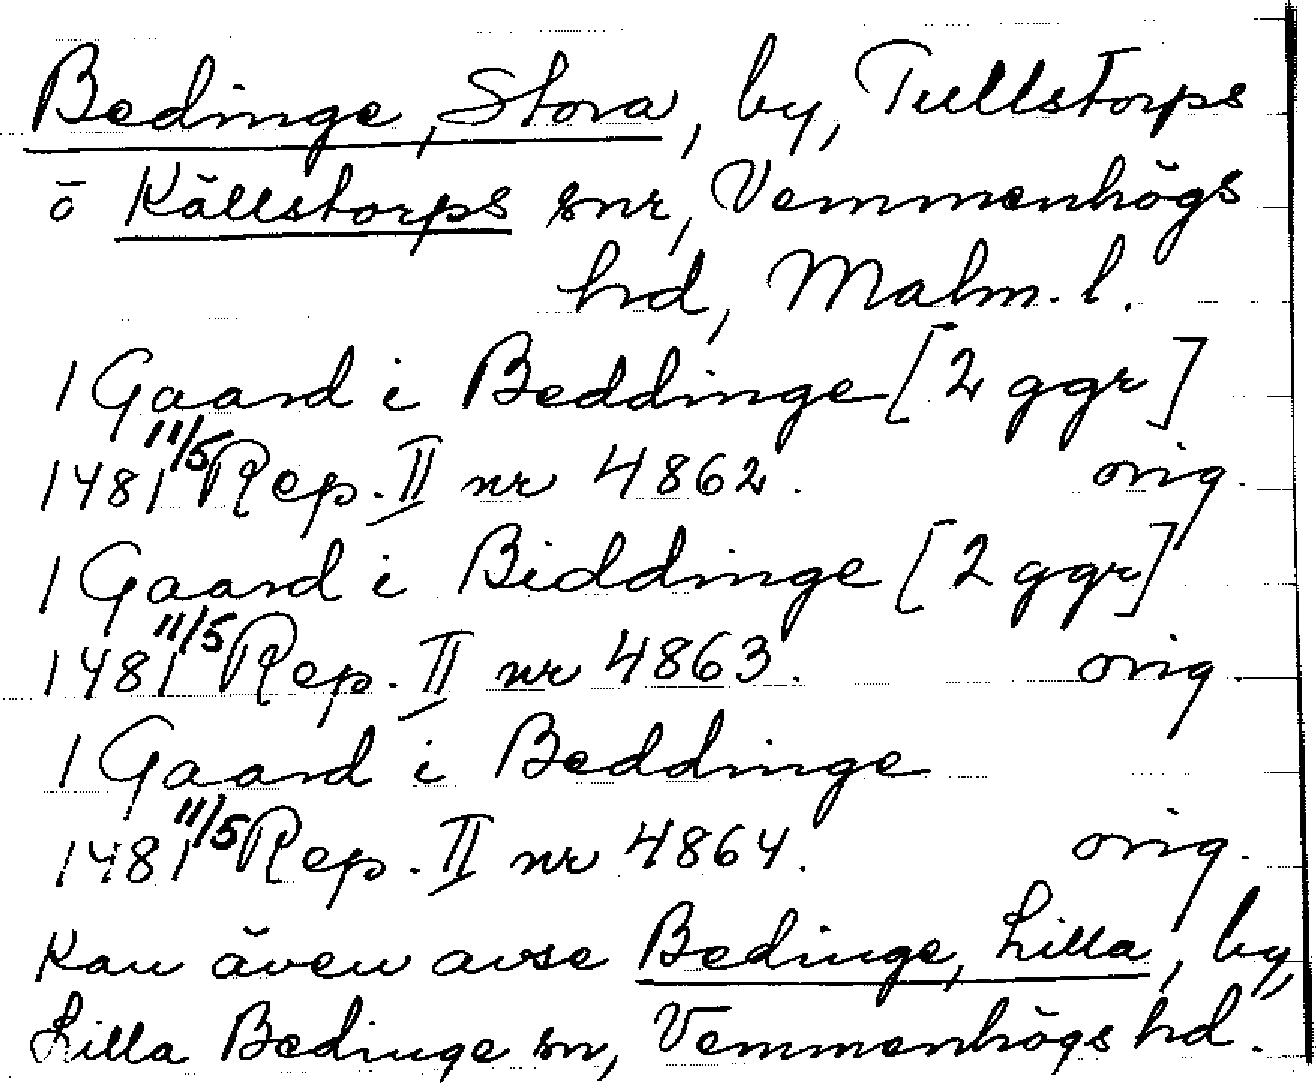 Bedinge, Stora, by, Tullstorps
o Källstorps snr, Vemmenhögs
hd, Malm. l.
1 Gaard i Beddinge [2 ggr]
1481 11/5 Rep. II nr 4862. orig.
1 Gaard i Biddinge [2 ggr]
1481 11/5 Rep. II nr 4863. orig.
1 Gaard i Beddinge
1481 11/5 Rep. II nr 4864. orig.
Kan även avse Bedinge, Lilla, by,
Lilla Bedinge sn, Vemmenhögs hd.